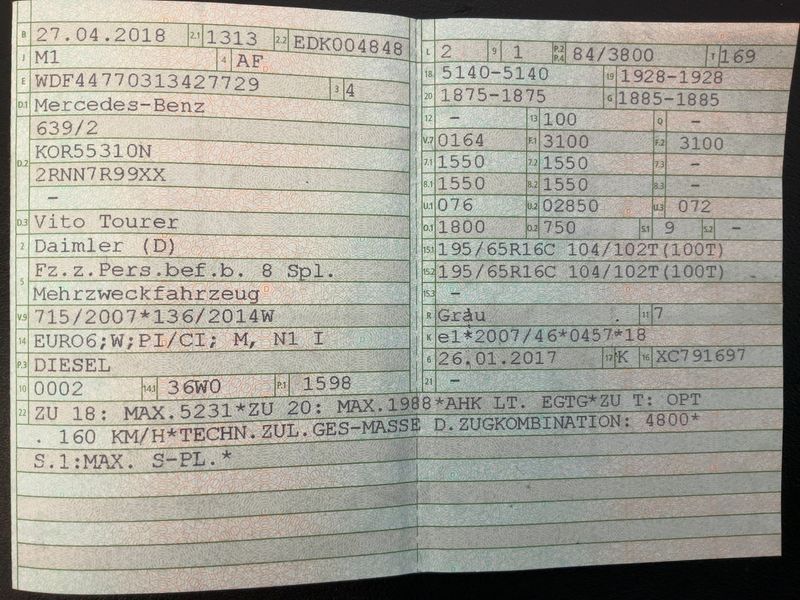 B 27.04.2018 2.1 1313 2.2 EDK004848
J M1 4 AF
E WDF44770313427729 3 4
D.1 Mercedes-Benz
D.2 639/2
KOR55310N
2RNN7R99XX
-
D.3 Vito Tourer
2 Daimler (D)
5 Fz.z.Pers.bef.b. 8 Spl.
Mehrzweckfahrzeug
V.9 715/2007*136/2014W
14 EURO6;W;PI/CI; M, N1 I
P.3 DIESEL
10 0002 14.1 36W0 P.1 1598
22 ZU 18: MAX.5231*ZU 20: MAX.1988*AHK LT. EGTG*ZU T: OPT
. 160 KM/H*TECHN.ZUL.GES-MASSE D.ZUGKOMBINATION: 4800*
S.1:MAX. S-PL.*
L 2 9 1 P.2 P.4 84/3800 T 169
18 5140-5140 19 1928-1928
20 1875-1875 G 1885-1885
12 - 13 100 Q -
V.7 0164 F.1 3100 F.2 3100
7.1 1550 7.2 1550 7.3 -
8.1 1550 8.2 1550 8.3 -
U.1 076 U.2 02850 U.3 072
O.1 1800 O.2 750 S.1 9 S.2 -
15.1 195/65R16C 104/102T(100T)
15.2 195/65R16C 104/102T(100T)
15.3 -
R Grau 11 7
K e1*2007/46*0457*18
6 26.01.2017 17 K 16 XC791697
21 -